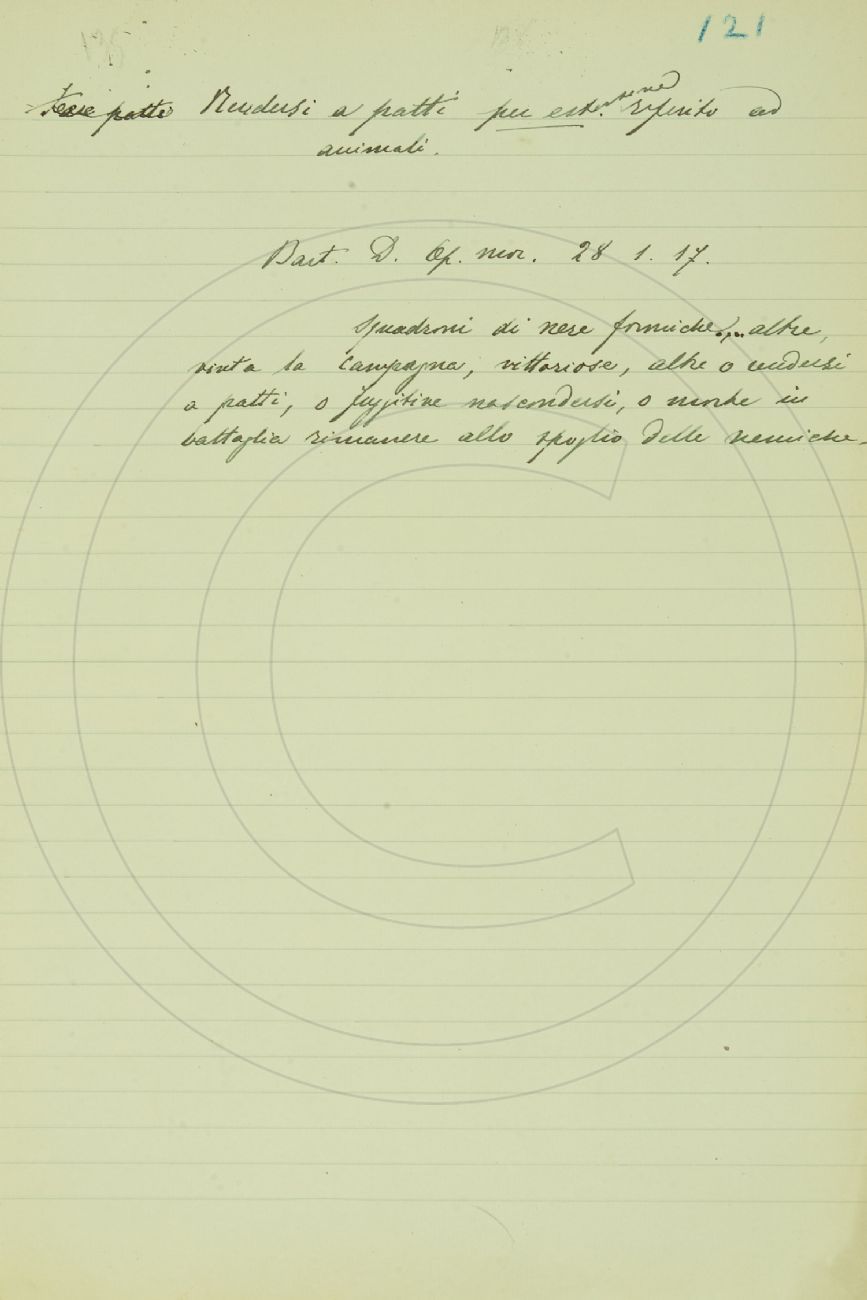 121
Rendersi a patti per estensione riferito ad
animali.
Bart. D. Op. mor. 28 1. 17.
Squadroni di nere formiche... altre,
vinta la campagna, vittoriose, altre o rendersi
a patti, o fuggitive nascondersi, o morte in
battaglia rimanere allo spoglio delle nemiche.